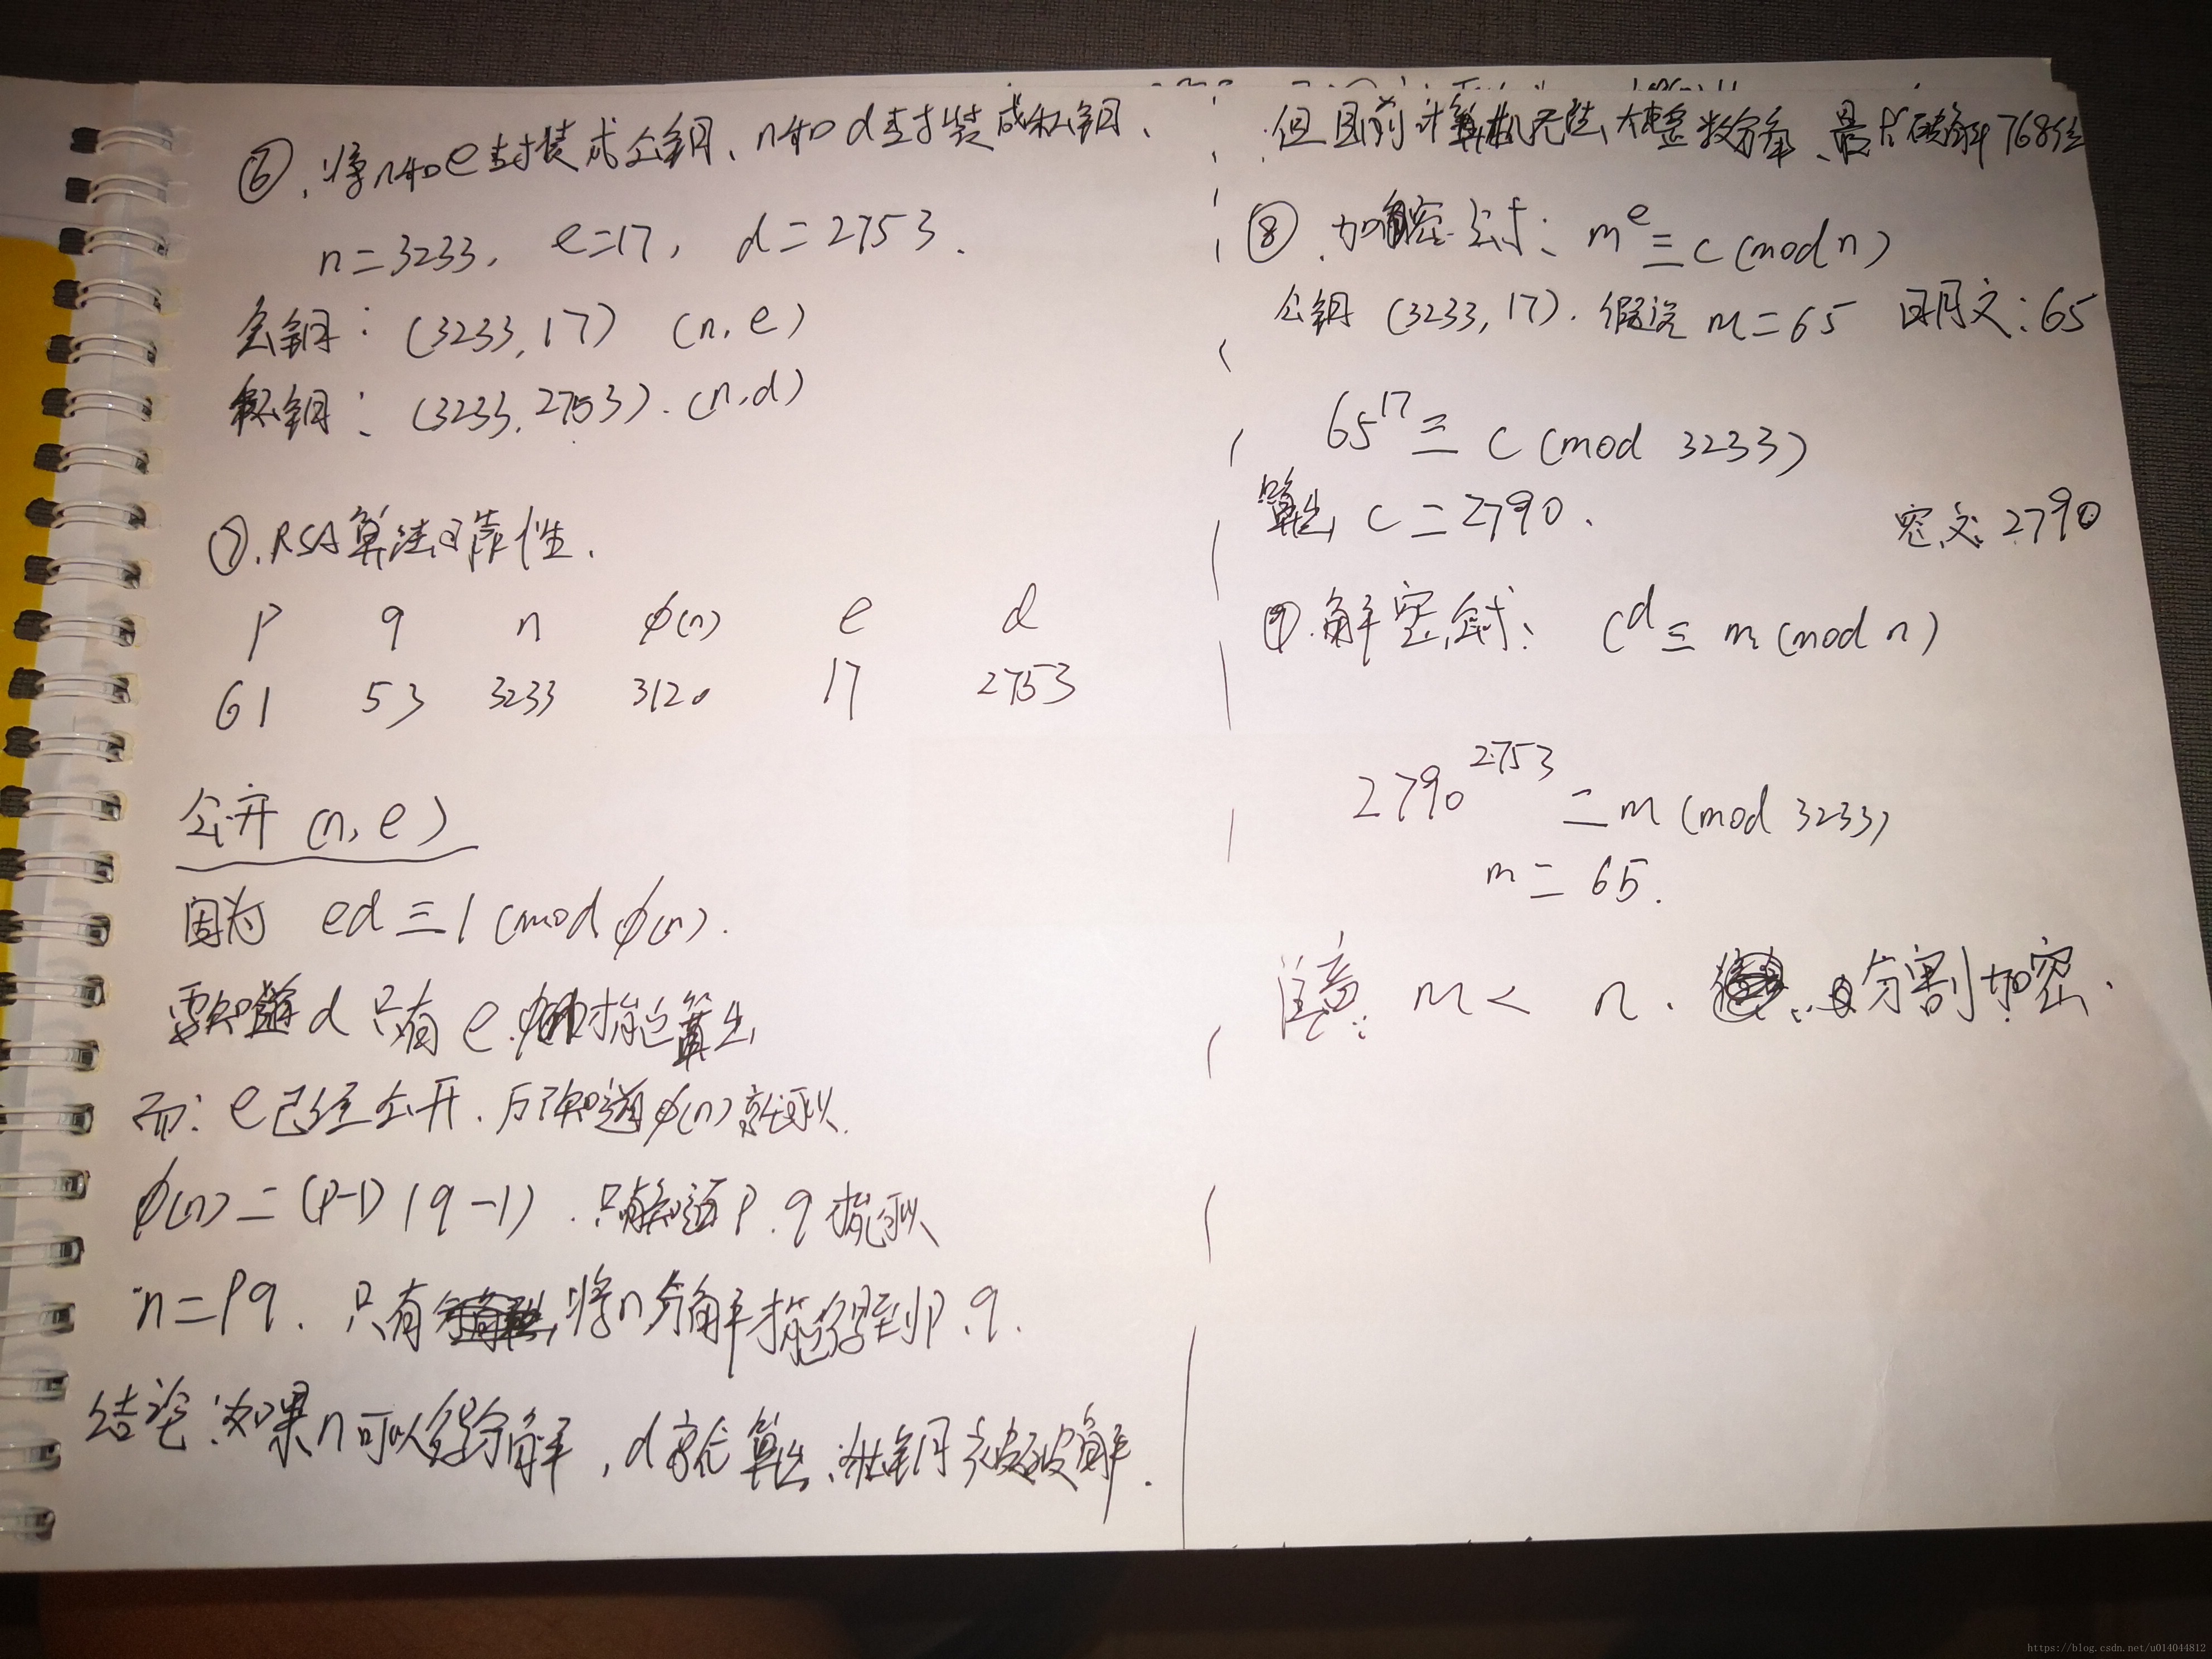 ⑥、将n和e封装成公钥、n和d封装成私钥、
n=3233, e=17, d=2753.
公钥: (3233,17) (n,e)
私钥: (3233,2753). (n,d)
⑦.RSA算法可靠性.
p q n φ(n) e d
61 53 3233 3120 17 2753
公开 (n,e)
因为 ed≡1 (mod φ(n).
要知道d只有e.φ(n)才能算出
而: e已经公开.只知道φ(n)就可以.
φ(n)=(p-1)(q-1).只有知道p.q才能可以
n=pq. 只有将n分解才能得到p.q.
结论:如果n可以分解,d就能算出、私钥被破解.
但目前计算机无法大整数分解、最大破解768位
⑧.加密公式: m^e≡c (mod n)
公钥 (3233,17). 假设 m=65 明文:65
65^17≡c (mod 3233)
算出 c=2790. 密文:2790
⑨.解密公式: c^d≡m (mod n)
2790^2753=m (mod 3233)
m=65.
注意: m< n. 分割加密.
https://blog.csdn.net/u014044812